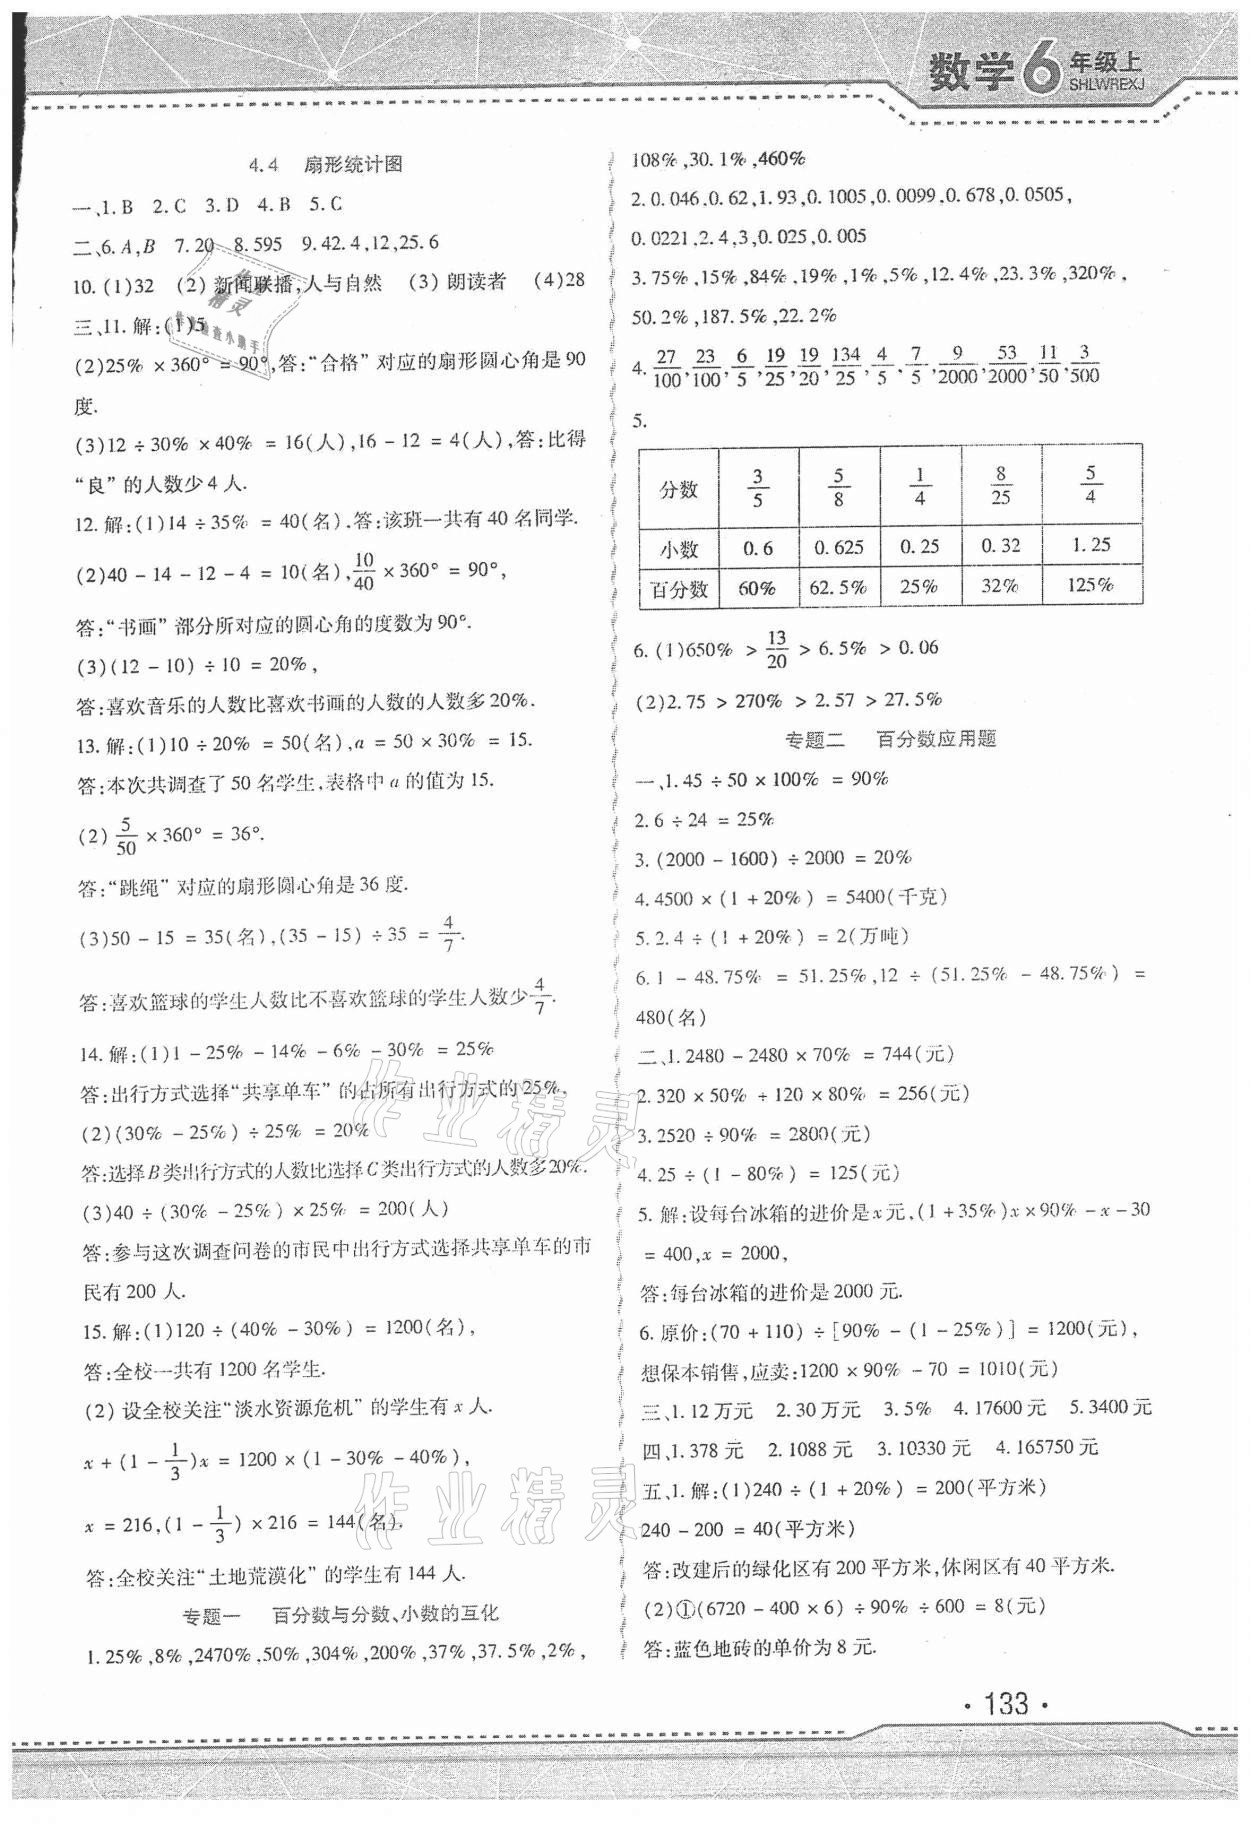 数学6年级上
SHLWREXJ
4.4 扇形统计图
一、1.B 2.C 3.D 4.B 5.C
二、6.A,B 7.20 8.595 9.42.4,12,25.6
10.(1)32 (2)新闻联播,人与自然 (3)朗读者 (4)28
三、11.解:(1)5
(2)25%×360°=90°,答:“合格”对应的扇形圆心角是90
度.
(3)12÷30%×40%=16(人),16-12=4(人),答:比得
“良”的人数少4人.
12.解:(1)14÷35%=40(名).答:该班一共有40名同学.
(2)40-14-12-4=10(名),10/40×360°=90°,
答:“书画”部分所对应的圆心角的度数为90°.
(3)(12-10)÷10=20%,
答:喜欢音乐的人数比喜欢书画的人数的人数多20%.
13.解:(1)10÷20%=50(名),a=50×30%=15.
答:本次共调查了50名学生,表格中a的值为15.
(2)5/50×360°=36°.
答:“跳绳”对应的扇形圆心角是36度.
(3)50-15=35(名),(35-15)÷35=4/7.
答:喜欢篮球的学生人数比不喜欢篮球的学生人数少4/7.
14.解:(1)1-25%-14%-6%-30%=25%
答:出行方式选择“共享单车”的占所有出行方式的25%.
(2)(30%-25%)÷25%=20%
答:选择B类出行方式的人数比选择C类出行方式的人数多20%.
(3)40÷(30%-25%)×25%=200(人)
答:参与这次调查问卷的市民中出行方式选择共享单车的市
民有200人.
15.解:(1)120÷(40%-30%)=1200(名),
答:全校一共有1200名学生.
(2)设全校关注“淡水资源危机”的学生有x人.
x+(1-1/3)x=1200×(1-30%-40%),
x=216,(1-1/3)×216=144(名).
答:全校关注“土地荒漠化”的学生有144人.
专题一 百分数与分数、小数的互化
1.25%,8%,2470%,50%,304%,200%,37%,37.5%,2%,
108%,30.1%,460%
2.0.046,0.62,1.93,0.1005,0.0099,0.678,0.0505,
0.0221,2.4,3,0.025,0.005
3.75%,15%,84%,19%,1%,5%,12.4%,23.3%,320%,
50.2%,187.5%,22.2%
4.27/100,23/100,6/5,19/25,19/20,134/25,4/5,7/5,9/2000,53/2000,11/50,3/500
5.
分数 3/5 5/8 1/4 8/25 5/4
小数 0.6 0.625 0.25 0.32 1.25
百分数 60% 62.5% 25% 32% 125%
6.(1)650%>13/20>6.5%>0.06
(2)2.75>270%>2.57>27.5%
专题二 百分数应用题
一、1.45÷50×100%=90%
2.6÷24=25%
3.(2000-1600)÷2000=20%
4.4500×(1+20%)=5400(千克)
5.2.4÷(1+20%)=2(万吨)
6.1-48.75%=51.25%,12÷(51.25%-48.75%)=
480(名)
二、1.2480-2480×70%=744(元)
2.320×50%+120×80%=256(元)
3.2520÷90%=2800(元)
4.25÷(1-80%)=125(元)
5.解:设每台冰箱的进价是x元,(1+35%)x×90%-x-30
=400,x=2000,
答:每台冰箱的进价是2000元.
6.原价:(70+110)÷[90%-(1-25%)]=1200(元),
想保本销售,应卖:1200×90%-70=1010(元)
三、1.12万元 2.30万元 3.5% 4.17600元 5.3400元
四、1.378元 2.1088元 3.10330元 4.165750元
五、1.解:(1)240÷(1+20%)=200(平方米)
240-200=40(平方米)
答:改建后的绿化区有200平方米,休闲区有40平方米.
(2)①(6720-400×6)÷90%÷600=8(元)
答:蓝色地砖的单价为8元.
·133·
作业精灵
作业精灵